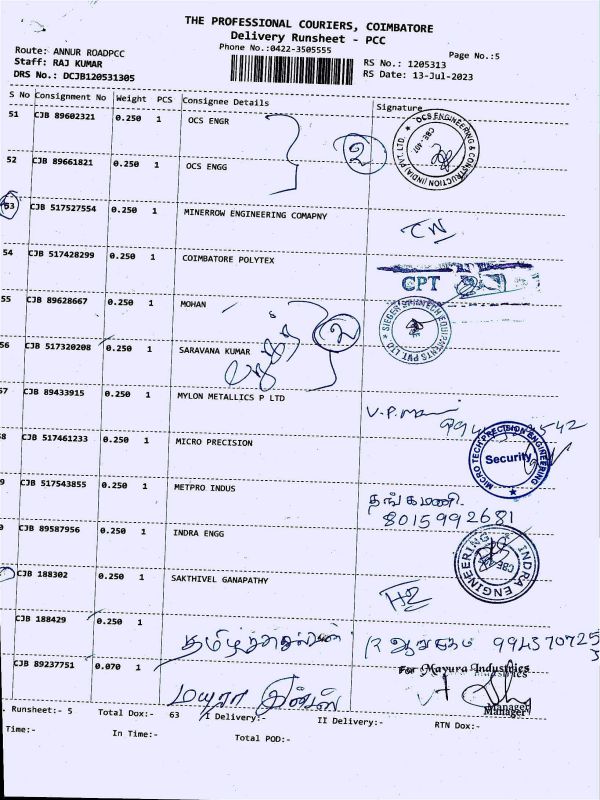 THE PROFESSIONAL COURIERS, COIMBATORE
Delivery Runsheet - PCC
Phone No.:0422-3505555
Page No.:5
Route: ANNUR ROADPCC
Staff: RAJ KUMAR
DRS No.: DCJB120531305
RS No.: 1205313
RS Date: 13-Jul-2023
S No Consignment No Weight PCS Consignee Details Signature
51 CJB 89602321 0.250 1 OCS ENGR
2
OCS ENGINEERING & CONSTRUCTION (INDIA) PVT LTD. ★ CBE-407
52 CJB 89661821 0.250 1 OCS ENGG
53 CJB 517527554 0.250 1 MINERROW ENGINEERING COMAPNY
54 CJB 517428299 0.250 1 COIMBATORE POLYTEX
CPT
55 CJB 89628667 0.250 1 MOHAN
2
56 CJB 517320208 0.250 1 SARAVANA KUMAR
57 CJB 89433915 0.250 1 MYLON METALLICS P LTD
V.P.
8 CJB 517461233 0.250 1 MICRO PRECISION
MICRO TECH PRECISION ENGINEERING ★
Security
9 CJB 517543855 0.250 1 METPRO INDUS
தங்கமணி.
8015992681
0 CJB 89587956 0.250 1 INDRA ENGG
INDRA ENGINEERING
CJB 188302 0.250 1 SAKTHIVEL GANAPATHY
CJB 188429 0.250 1
CJB 89237751 0.070 1
For Mayura Industries
Manager
. Runsheet:- 5 Total Dox:- 63 I Delivery:- II Delivery:- RTN Dox:-
Time:- In Time:- Total POD:-